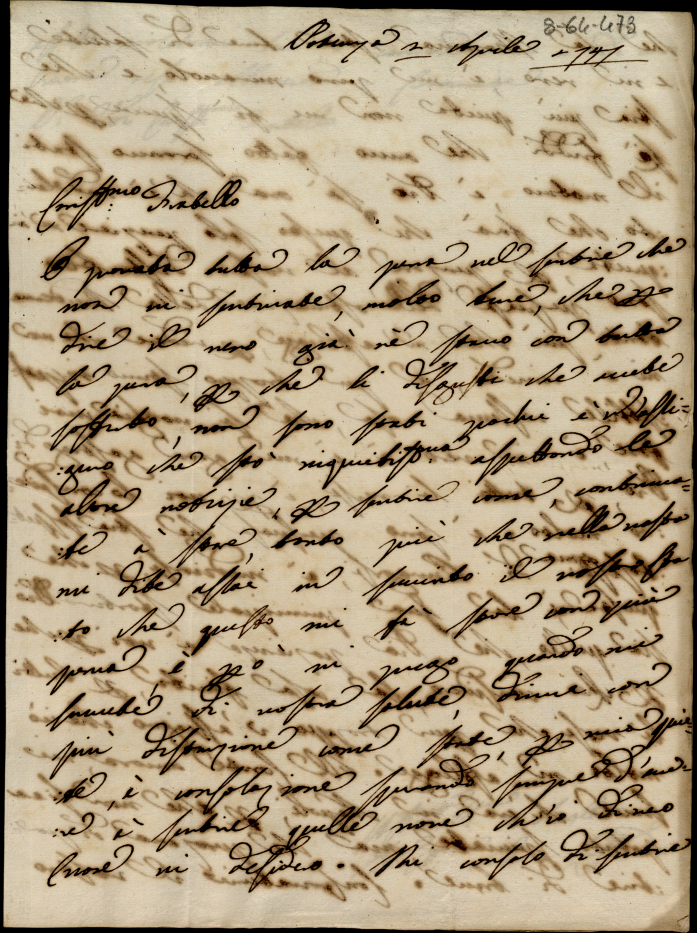 8-64-473
Potenza 2 Aprile 1797
Cariss.mo Fratello
È provata tutta la pena nel sentire che
non vi sentivate, molto bene, che p
dire il vero già nè stavo con tutta
la pena, p che li disgusti che avete
soffrito, non sono stati pochi è
che stò inquietiss.ma aspettando le
altre notizie, p sentire come, continua-
:te à stare, tanto più che nella vostra
mi dite assai in succinto il vostro sta
:to che questo mi fà stare con più
pena, è p ò vi prego quando mi
scrivete di vostra salute, dirmi con
più distinzione come state, p mia qui-
:te, è consolazione sperando sempre d'ave-
:re à sentire quelle nove ch'io di vero
Cuore vi desidero. Mi consolo di sentire